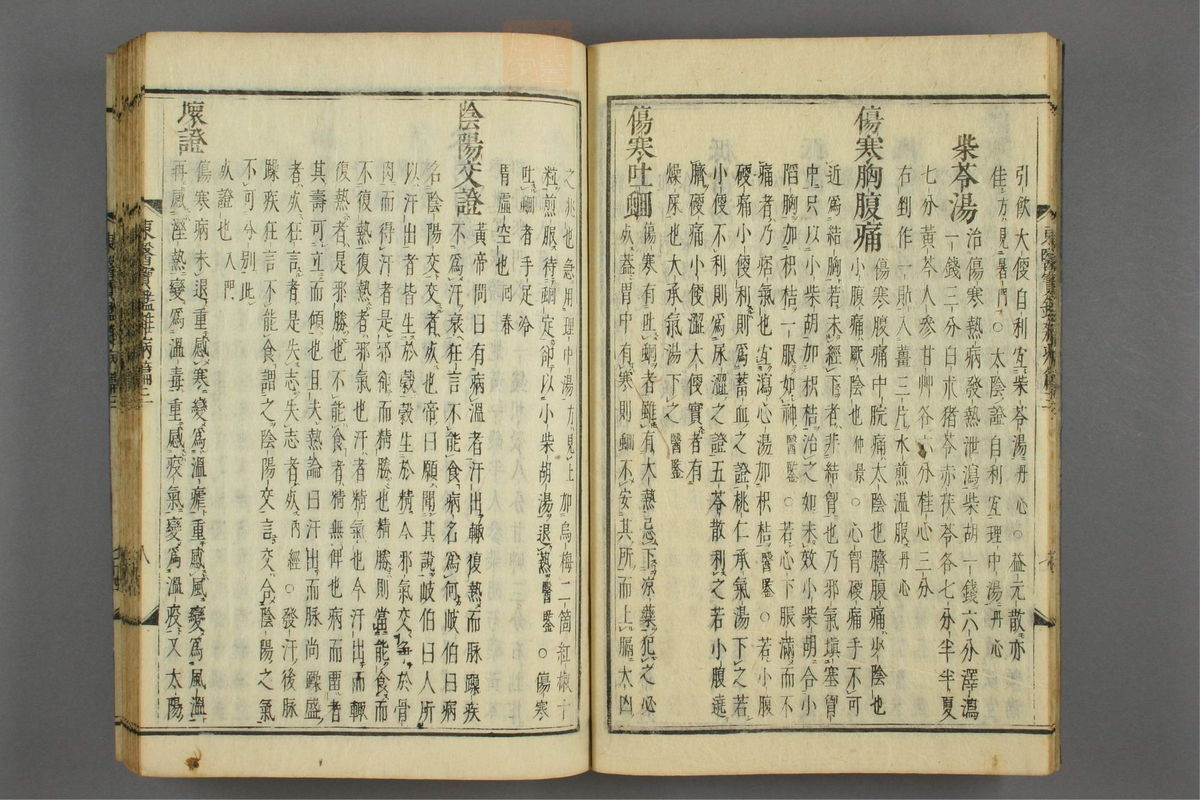 引飮大便自利宜柴苓湯丹心○益元散亦
佳方見暑門○太陰證自利宜理中湯丹心
柴苓湯
治傷寒熱病發熱泄瀉柴胡一錢六分澤瀉
一錢三分白朮猪苓赤茯苓各七分半半夏
七分黃芩人參甘艸各六分桂心三分
右剉作一貼入薑三片水煎溫服丹心
傷寒胸腹痛
傷寒腹痛中脘痛太陰也臍腹痛少陰也
小腹痛厥陰也仲景○心胷硬痛手不可
近爲結胸若未經下者非結胷也乃邪氣塡塞胷
中只以小柴胡加枳桔治之如未效小柴胡合小
陷胸加枳桔一服如神醫鑒○若心下脹滿而不
痛者乃痞氣也宜瀉心湯加枳桔醫鑒○若小腹
硬痛小便利則爲蓄血之證桃仁承氣湯下之若
小便不利則爲尿澀之證五苓散利之若小腹遶
臍硬痛小便澀大便實者有
燥屎也大承氣湯下之醫鑒
傷寒吐蛔
傷寒有吐蛔者雖有大熱忌下凉藥犯之必
死盖胃中有寒則蛔不安其所而上膈大凶
之兆也急用理中湯方見上加烏梅二箇紅椒十
粒煎服待蛔定却以小柴胡湯退熱醫鑒○傷寒
吐蛔者手足
冷胃虛空也回春
陰陽交證
黃帝問曰有病溫者汗出輒復熱而脉躁疾
不爲汗衰狂言不能食病名爲何岐伯曰病
名陰陽交交者死也帝曰願聞其說岐伯曰人所
以汗出者皆生於穀穀生於精今邪氣交爭於骨
肉而得汗者是邪却而精勝也精勝則當能食而
不復熱復熱者邪氣也汗者精氣也今汗出而輒
復熱者是邪勝也不能食者精無俾也病而留者
其壽可立而傾也且夫熱論曰汗出而脉尚躁盛
者死狂言者是失志失志者死內經○發汗後脉
躁疾狂言不能食謂之陰陽交言交合陰陽之氣
不可分別此
死證也入門
壞證
傷寒病未退重感寒變爲溫瘧重感風變爲風溫
再感溼熱變爲溫毒重感疫氣變爲溫疫又太陽
東醫寶鑑雜病篇三
八